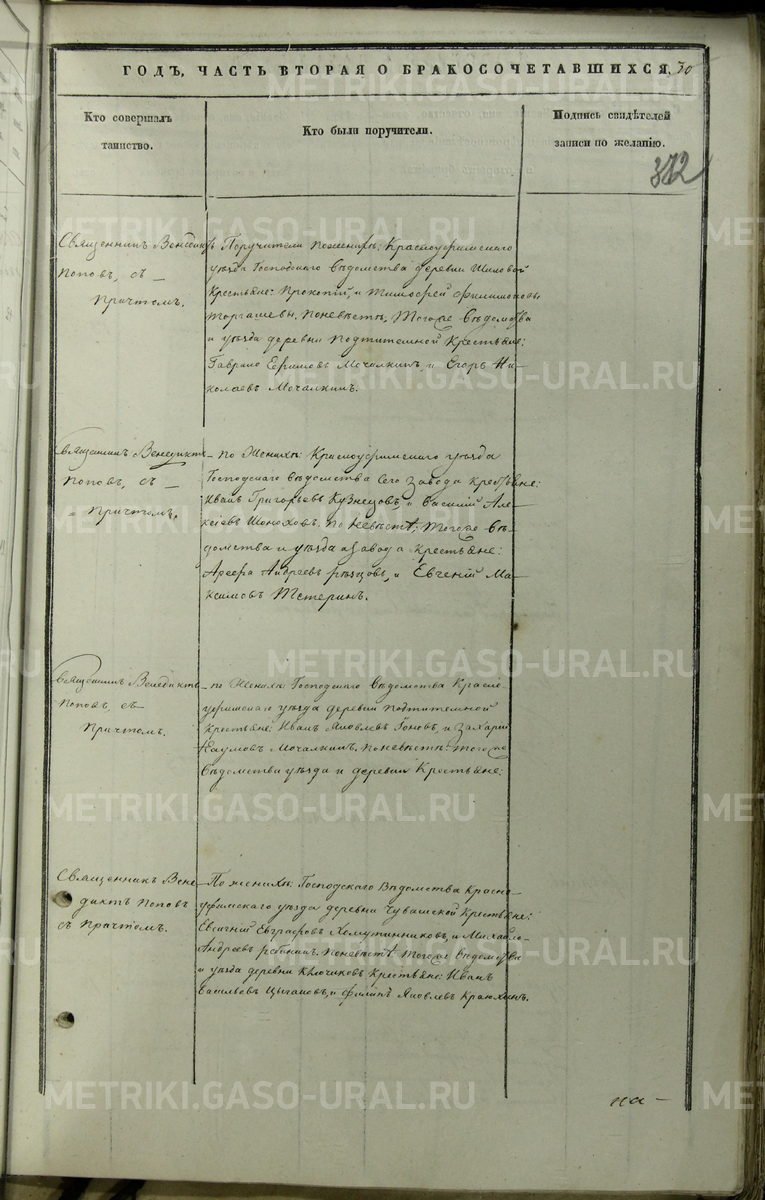 ГОДЪ, ЧАСТЬ ВТОРАЯ О БРАКОСОЧЕТАВШИХСЯ. 30
Кто совершалъ
таинство.
Кто были поручители.
Подпись свидѣтелей
записи по желанію.
312
Священникъ Бенедиктъ
Поповъ, съ
Причтомъ.
Поручители по женихѣ: Красноуфимскаго
уѣзда Господскаго Вѣдомства деревни Шиловой
Крестьяне: Прокопій, и Тимофей Филипповы
Торгашевы. По невѣстѣ, Того же Вѣдомства
и уѣзда деревни Подтитемной Крестьяне:
Гаврило Ефимовъ Мочалкинъ, и Егоръ Ни-
колаевъ Мочалкинъ.
Священникъ Венедиктъ
Поповъ, съ
Причтомъ.
По Женихѣ: Красноуфимскаго уѣзда
Господскаго Вѣдомства Сего Завода Крестьяне:
Иванъ Григорьевъ Кузнецовъ, и Василій Але-
ксѣевъ Шоноховъ. По невѣстѣ: Того же Вѣ-
домства и уѣзда и Завода Крестьяне:
Андреевъ Рѣзцовъ, и Евгеній Ма-
ксимовъ Тетеринъ.
Священникъ Венедиктъ
Поповъ, съ
Причтомъ.
по Женихѣ Господскаго Вѣдомства Красно-
уфимскаго уѣзда деревни Подтитемной
Крестьяне: Иванъ Яковлевъ и Захаръ
Наумовъ Мочалкинъ. По невѣстѣ: того же
Вѣдомства уѣзда и деревни Крестьяне:
Священникъ Вене-
диктъ Поповъ
съ Причтомъ.
По женихѣ: Господскаго Вѣдомства Красно-
уфимскаго уѣзда деревни Чувашской Крестьяне:
Евграфовъ Хомутинниковъ, и Михайло
Андреевъ По невѣстѣ: Того же Вѣдомства
и уѣзда деревни Ключиковъ Крестьяне: Иванъ
Васильевъ Цыгановъ, и Филипъ Яковлевъ
на -
METRIKI.GASO-URAL.RU
METRIKI.GASO-URAL.RU
METRIKI.GASO-URAL.RU
METRIKI.GASO-URAL.RU
METRIKI.GASO-URAL.RU
METRIKI.GASO-URAL.RU
METRIKI.GASO-URAL.RU
METRIKI.GASO-URAL.RU